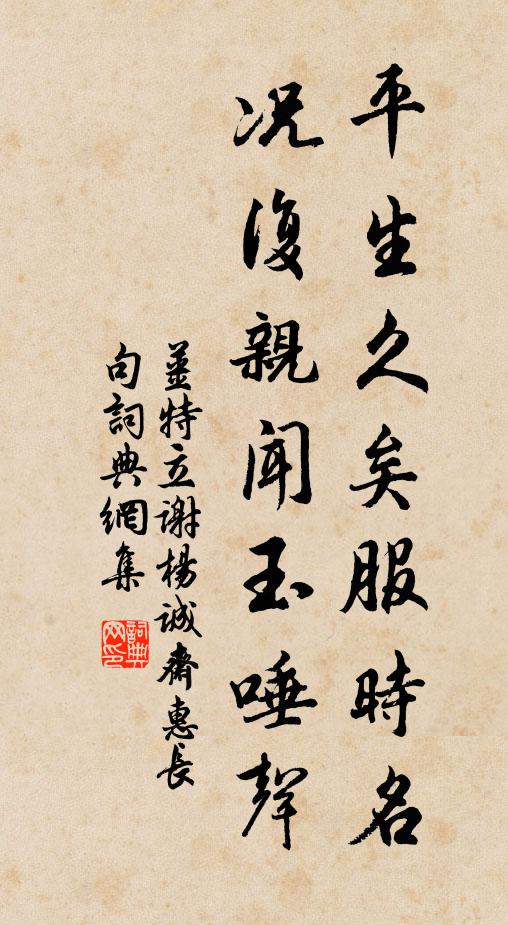 平生久矣服時名
况復親聞玉唾聲
姜特立謝楊誠齋惠長
句詞典網集
詞典網印